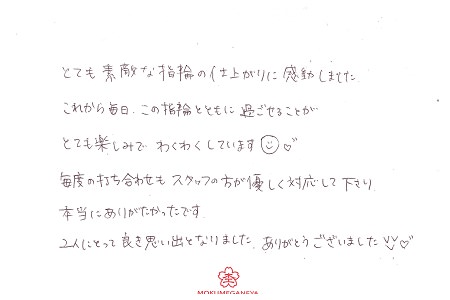 とても素敵な指輪の仕上がりに感動しました
これから毎日、この指輪とともに過ごせることが
とても楽しみで わくわくしています
毎度の打ち合わせも スタッフの方が優しく対応して下さり
本当にありがたかったです.
2人にとって良き思い出となりました. ありがとうございました
MOKUMEGANEYA